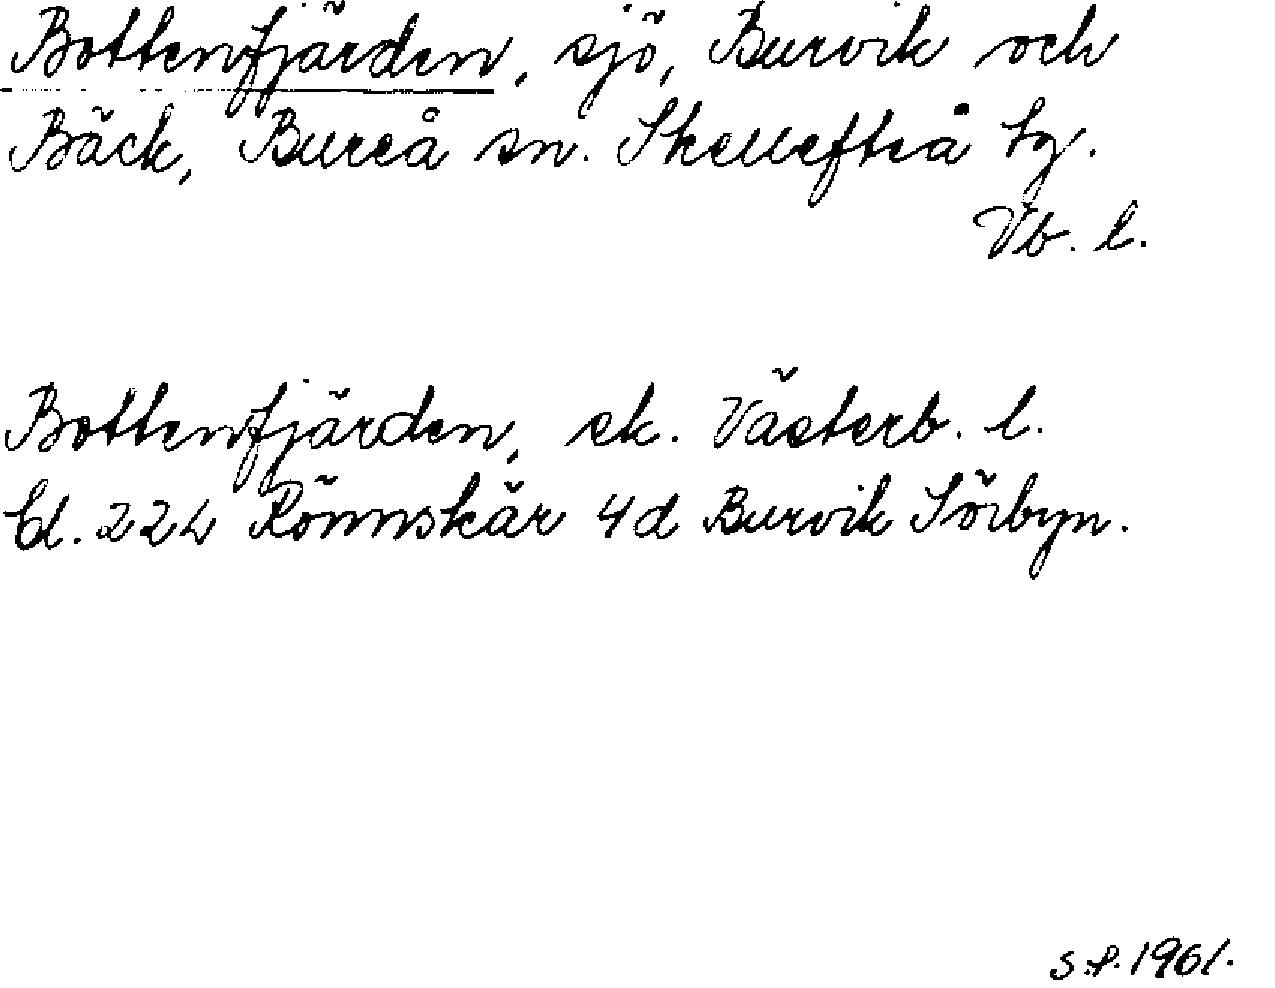 Bottenfjärden, sjö, Burvik och
Bäck, Bureå sn. Skellefteå tg.
Vb. l.
Bottenfjärden, ek. Västerb. l.
bl. 224 Rönnskär 4d Burvik Sörbyn.
S.P. 1961.